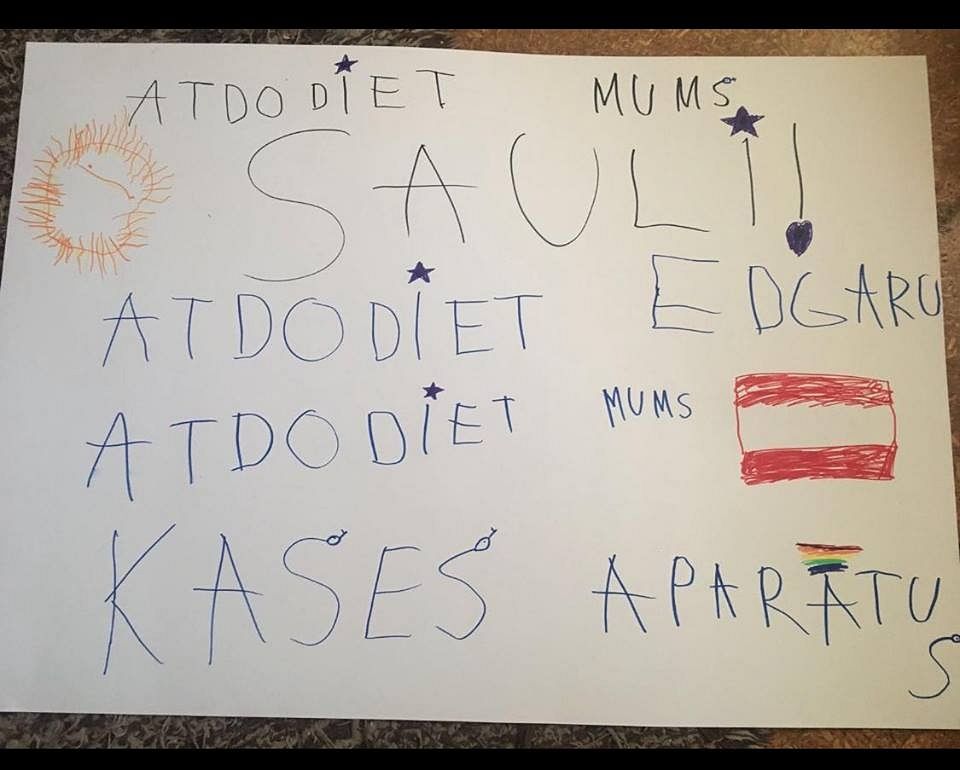 ATDODIET MUMS
SAULI!
ATDODIET EDGARU
ATDODIET MUMS
KASES APARĀTUS